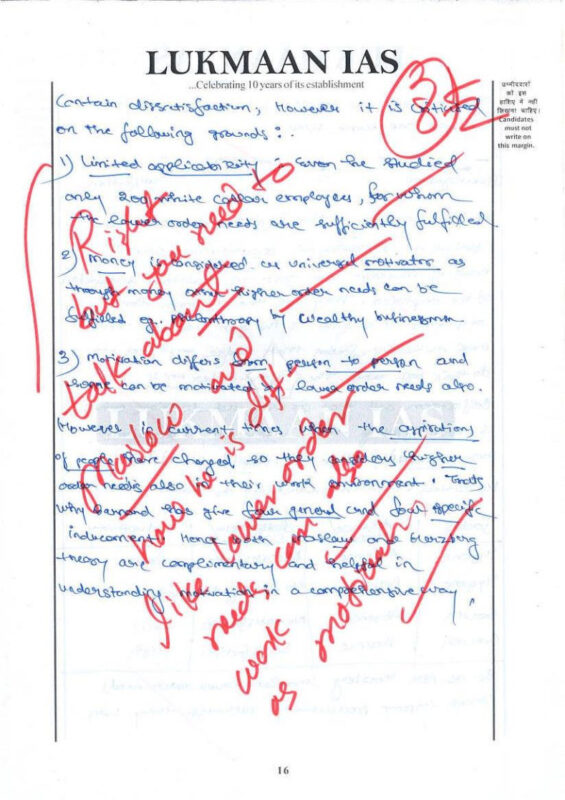 LUKMAAN IAS
...Celebrating 10 years of its establishment
उम्मीदवारों
को इस
हाशिए में नहीं
लिखना चाहिए।
Candidates
must not
write on
this margin.
3
8 ½
Contain dissatisfaction, However it is criticised
on the following grounds:-
1) Limited applicatority he studied
only 200 white collar employees, for whom
the lower order needs are sufficiently fulfilled
2) Money is considered as universal motivator as
through money other higher order needs can be
fulfilled eg. Philanthropy by wealthy businessmen
3) Motivation differs from person to person and
some can be motivated by lower order needs also.
LUKMAAN IAS
However in current times when the aspirations
of people have changed so they considers higher
order needs also in their work environment. Thats
why Bernard has give four general and four specific
inducement. Hence both Maslow and Herzberg
theory are complimentary and helpful in
understanding motivation in a comprehensive way.
Right
but you need to
talk about
Maslow and
how he is diff.
like lower order
needs can also
work
as motivator
16